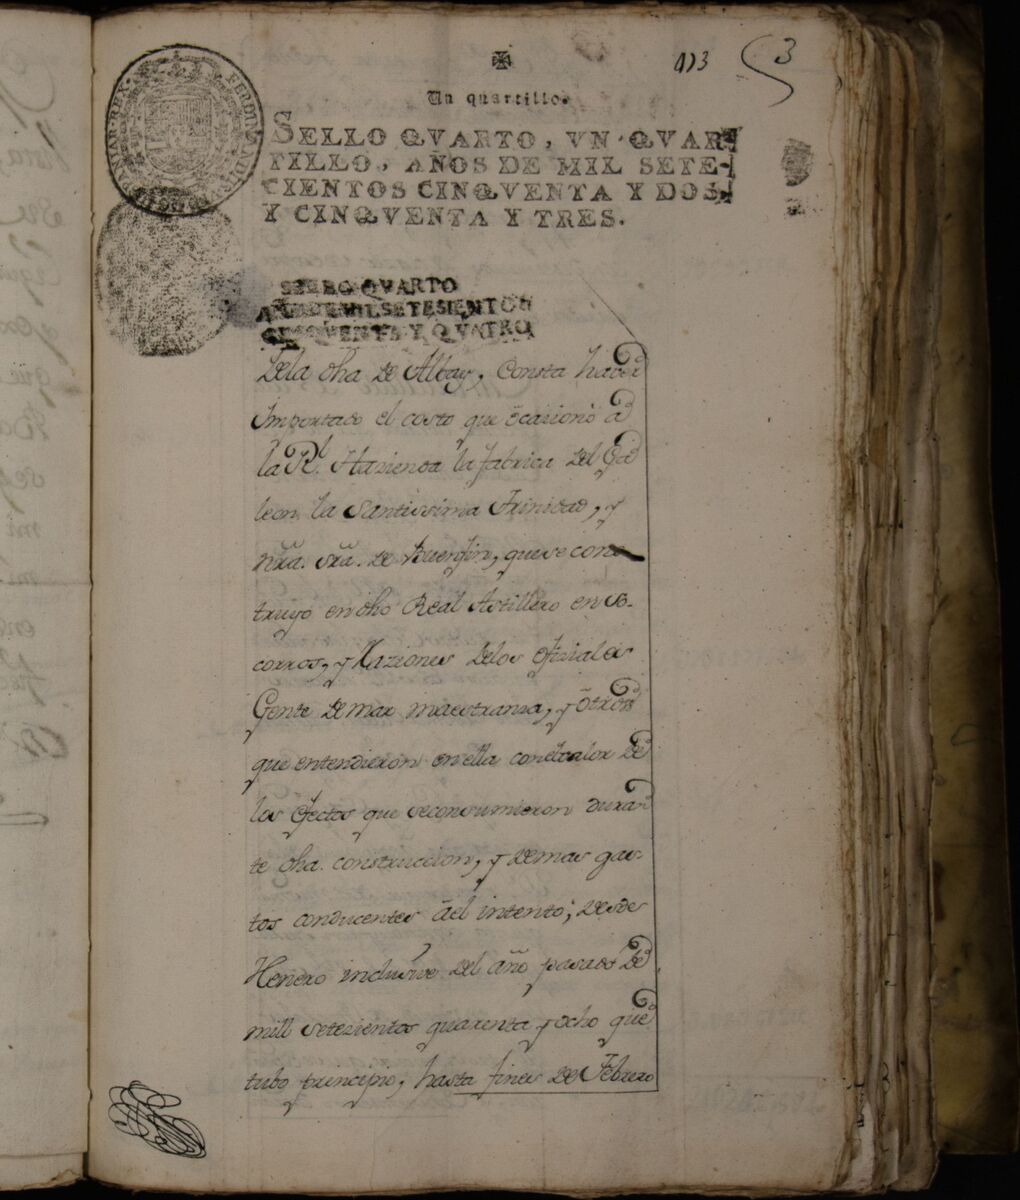 113 3
Un quartillo.
SELLO QVARTO, VN QVAR-
TILLO, AÑOS DE MIL SETE-
CIENTOS CINQVENTA Y DOS,
Y CINQVENTA Y TRES.
SELLO QVARTO
AÑO DE MIL SETESIENTOS
CINQVENTA Y QVATRO
Dela dha de Albay, Consta haver
Importado el costo que ocacionó a
la Rl. Hazienda la fabrica del Ga
leon la Santissima Trinidad, y
nrã. srã. de Buenfin, que se cons
truyo en dho Real Astillero en so-
corros, y Raziones delos ofiziales
Gente de mar maestransa, y otros
que entendieron en ella con el valor de
los efectos que se consumieron duran
te dha. construccion, y demas gas-
tos conducentes ael intento; desde
Henero inclusive del año pasado de
mill setezientos quarenta y ocho que
tubo principio, hasta fines de Febrero